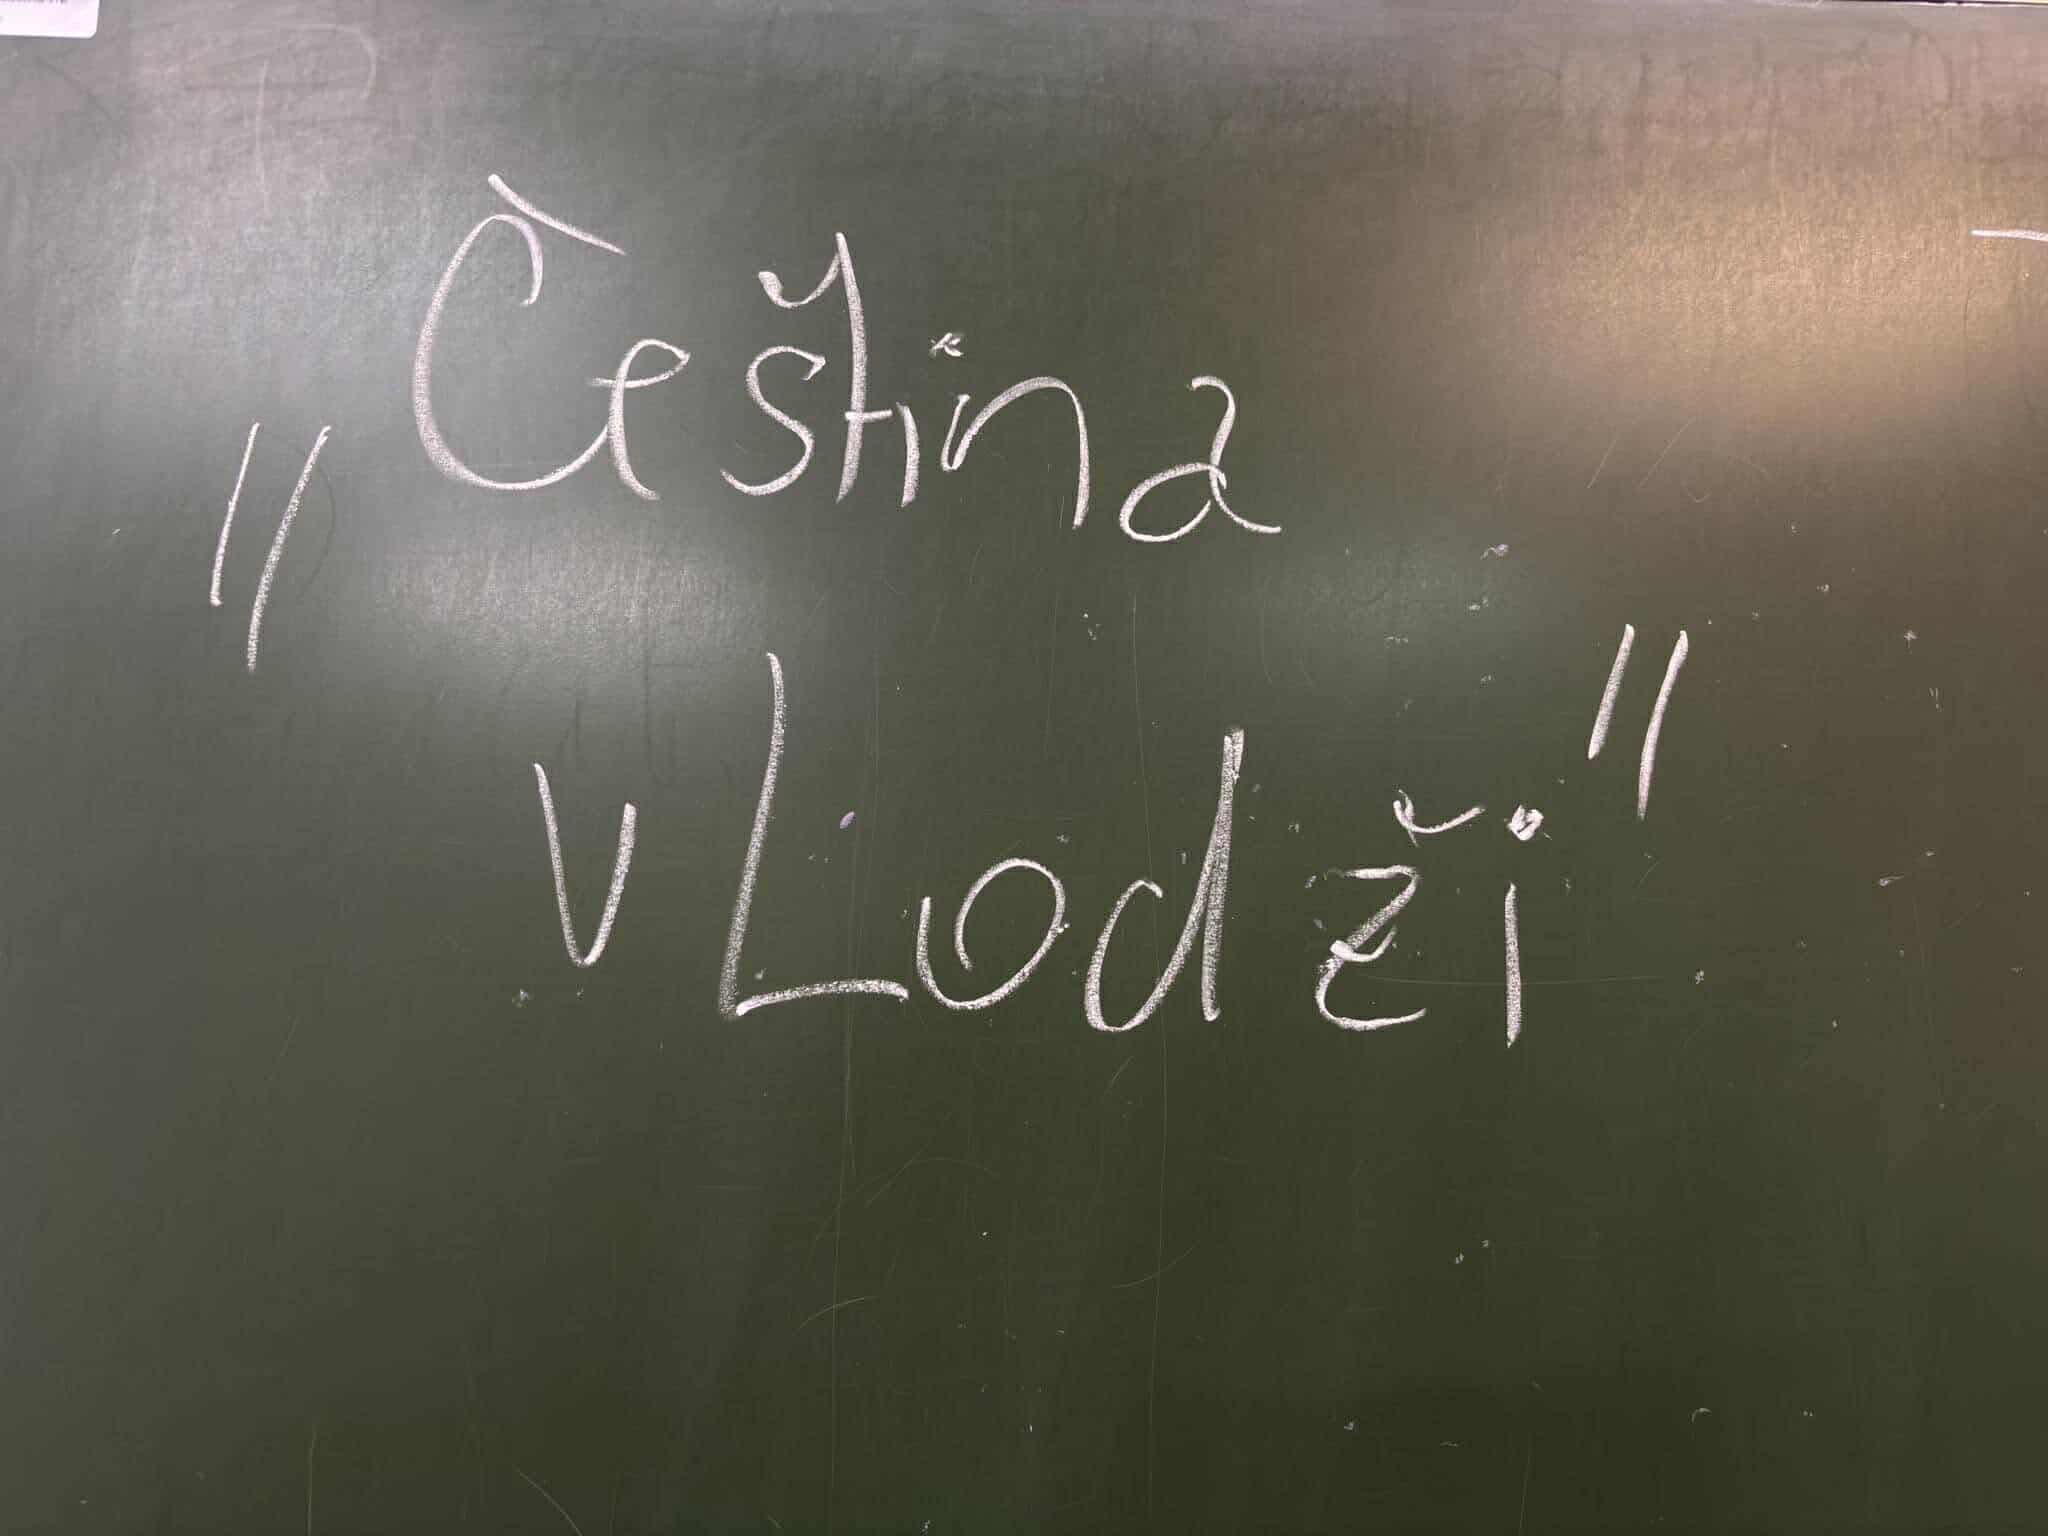 "Čeština
v Lodži"